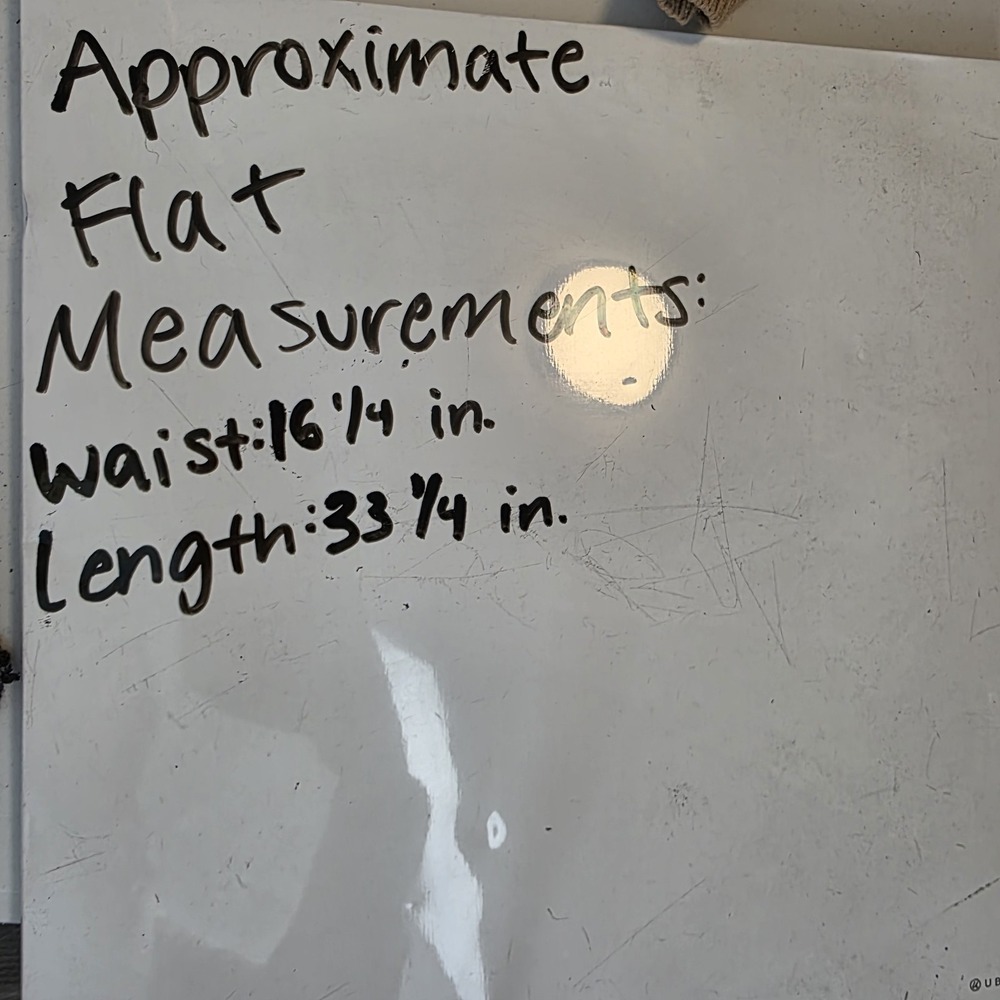 Approximate
Flat
Measurements:
Waist:16 1/4 in.
Length:33 1/4 in.